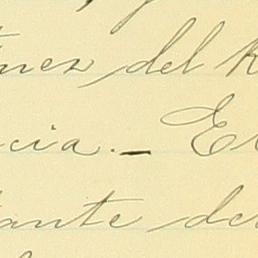 nez del R
cia. — E
tante de